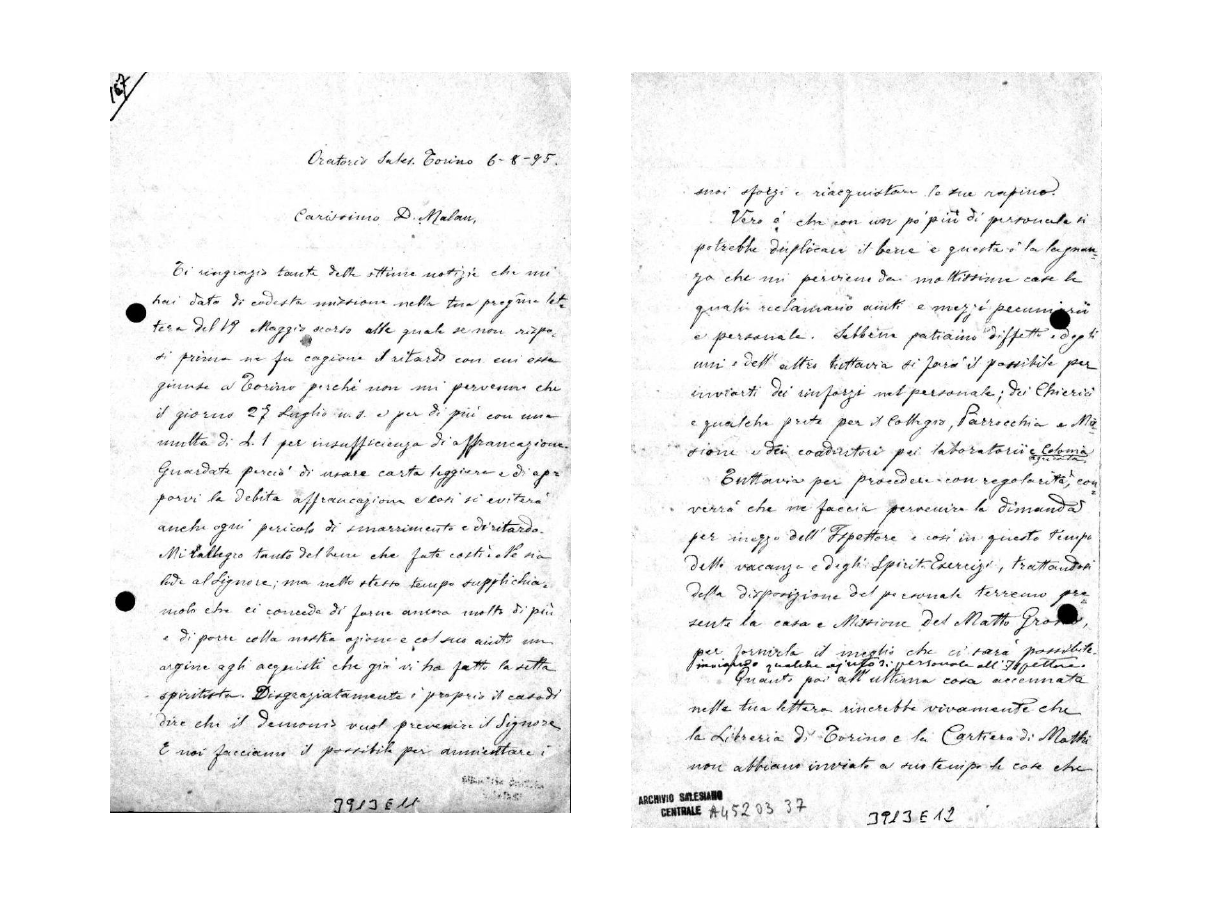 167
Oratorio Sales. Torino 6-8-95.
Carissimo D. Malan,
Ti ringrazio tanto delle ottime notizie che mi
hai dato di codesta missione nella tua preg͞ma let-
tera del 19 Maggio scorso alla quale se non rispo-
si prima ne fu cagione il ritardo con cui essa
giunse a Torino perché non mi pervenne che
il giorno 27 Luglio u. s. e per di più con una
multa di L. 1 per insufficienza di affrancazione.
Guardate perciò di usare carta leggiera e di ap-
porvi la debita affrancazione e così si eviterà
anche ogni pericolo di smarrimento e di ritardo.
Mi rallegro tanto del bene che fate costì e ne sia
lode al Signore; ma nello stesso tempo supplichia-
molo che ci conceda di farne ancora molto di più
e di porre colla nostra azione e col suo aiuto un
argine agli acquisti che già vi ha fatti la setta
spiritista. Disgraziatamente è proprio il caso di
dire che il demonio vuol prevenire il Signore
E noi facciamo il possibile per annientare i
3913 E 11
suoi sforzi e riacquistare le sue rapine.
Vero è che con un po' più di personale si
potrebbe duplicare il bene e questa è la lagnan-
za che mi perviene da moltissime case le
quali reclamano aiuti e mezzi pecuniarii
e personale. Sebbene patiamo diffetto e degli
uni e dell'altro tuttavia si farà il possibile per
inviarti dei rinforzi nel personale; dei Chierici
e qualche prete per il Collegio, Parrocchia e Mis-
sione e dei coadiutori pei laboratorii e Colonia
agricola
Tuttavia per procedere con regolarità, con-
verrà che ne faccia pervenire la dimanda
per mezzo dell'Ispettore e così in questo tempo
delle vacanze e degli Spirit. Esercizi, trattandosi
della disposizione del personale terremo pre-
sente la casa e Missione del Matto Grosso,
per fornirla il meglio che ci sarà possibile
inviando qualche aiuto di personale all'Ispettore.
Quanto poi all'ultima cosa accennata
nella tua lettera rincrebbe vivamente che
la Libreria di Torino e la Cartiera di Mathi
non abbiano inviato a suo tempo le cose che
ARCHIVIO SALESIANO
CENTRALE A452 03 37
3913 E 12